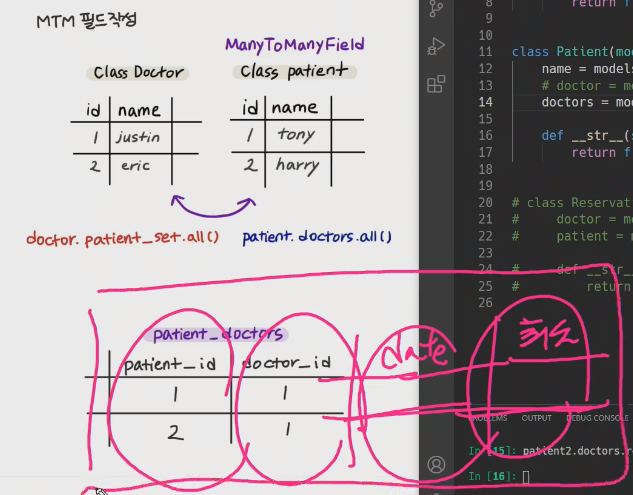 MTM 필드작성
ManyToManyField
Class Doctor
Class patient
id name
1 justin
2 eric
id name
1 tony
2 harry
doctor. patient_set.all()
patient. doctors.all()
patient_doctors
patient_id doctor_id
1 1
2 1
date
8 return f
9
10
11 class Patient(mod
12 name = models
13 # doctor = mo
14 doctors = mod
15
16 def __str__(s
17 return f
18
19
20 # class Reservat
21 # doctor = mo
22 # patient = m
24 # def __str_
25 # return
26
OUTPUT
DEBUG CONSOLE
In [15]: patient2.doctors.re
In [16]: